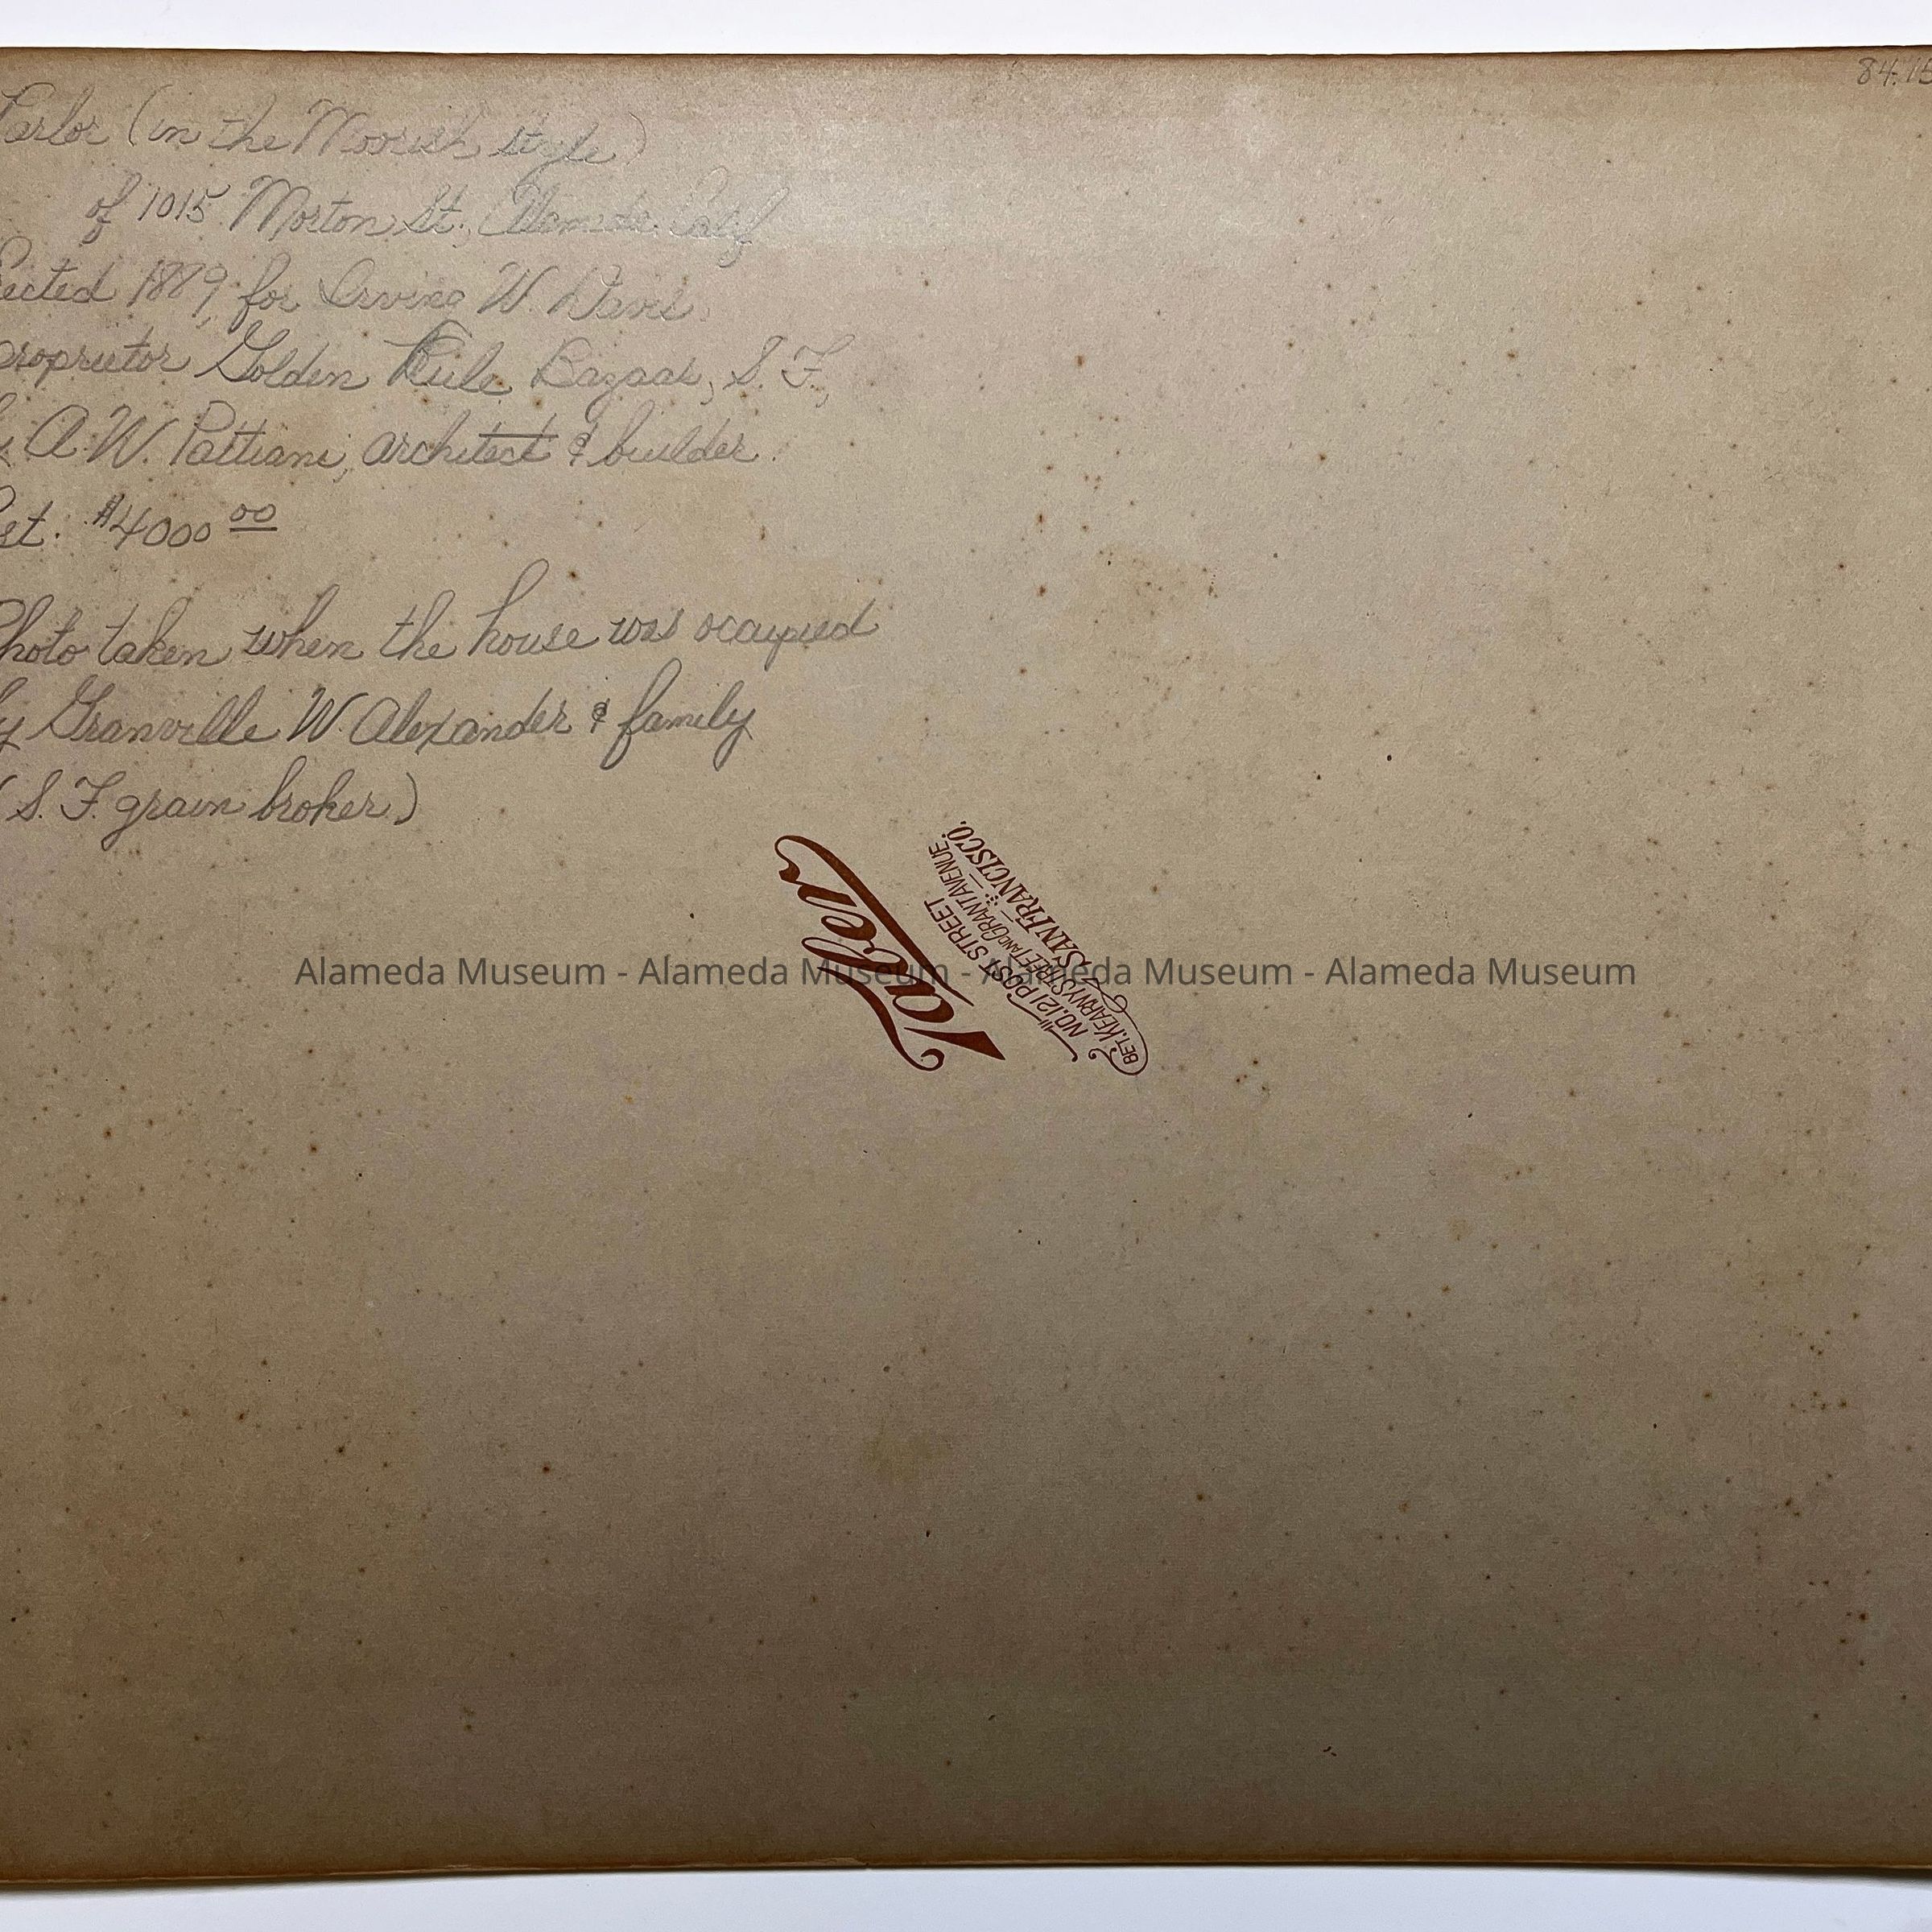 84.15
Parlor (in the Moorish style)
of 1015 Morton St., Alameda, Calif
ected 1879, for Irving W. Davis,
proprietor Golden Rule Bazaar, S. F.,
A. W. Pattiani, architect & builder.
$4000 00
Photo taken when the house was ocaupied
by Granville W. Alexander & family
(S. F. grain broker)
Taber
NO. 121 POST STREET
BET. KEARNY STREET AND GRANT AVENUE
SAN FRANCISCO.
Alameda Museum - Alameda Museum - Alameda Museum - Alameda Museum